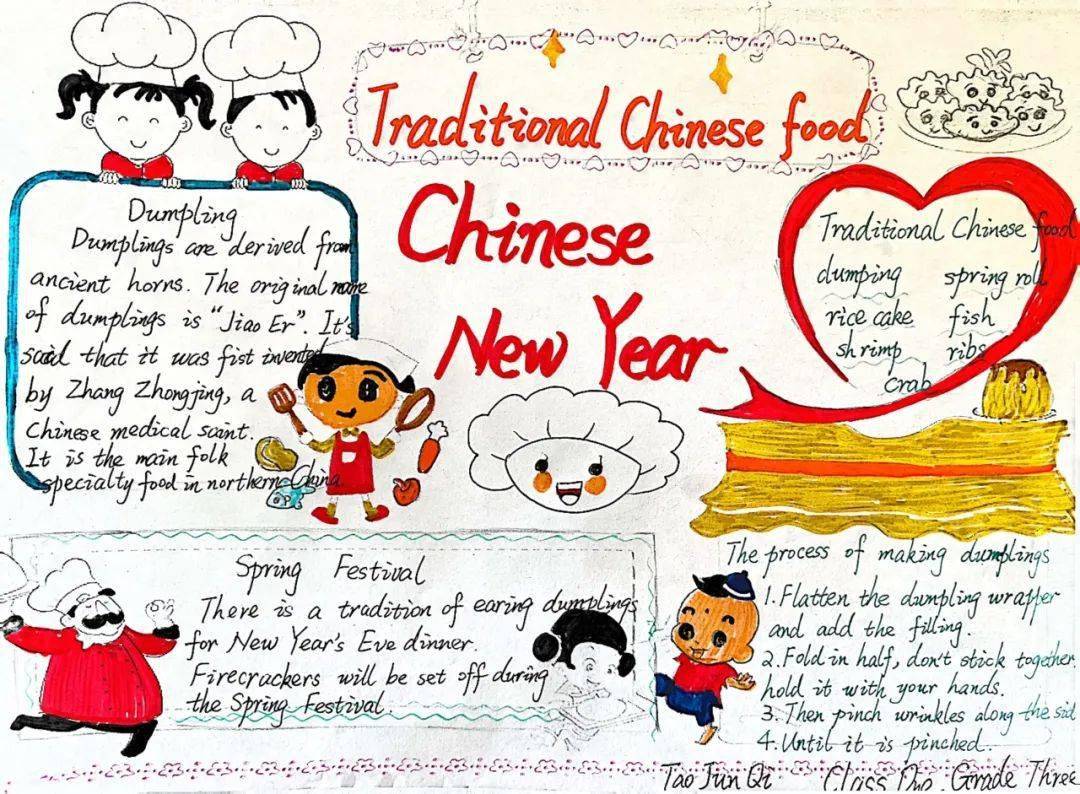 Traditional Chinese food
Chinese
New Year
Dumpling
Dumplings are derived from
ancient horns. The original name
of dumplings is "Jiao Er". It's
said that it was fist invented
by Zhang Zhongjing, a
Chinese medical saint.
It is the main folk
specialty food in northern China.
Traditional Chinese food
dumping spring roll
rice cake fish
shrimp ribs
crab
Spring Festival
There is a tradition of earing dumplings
for New Year's Eve dinner.
Firecrackers will be set off during
the Spring Festival
The process of making dumplings
1. Flatten the dumpling wrapper
and add the filling.
2. Fold in half, don't stick together.
hold it with your hands.
3. Then pinch wrinkles along the sid
4. Until it is pinched.
Tao Jun Qi Class One, Grade Three